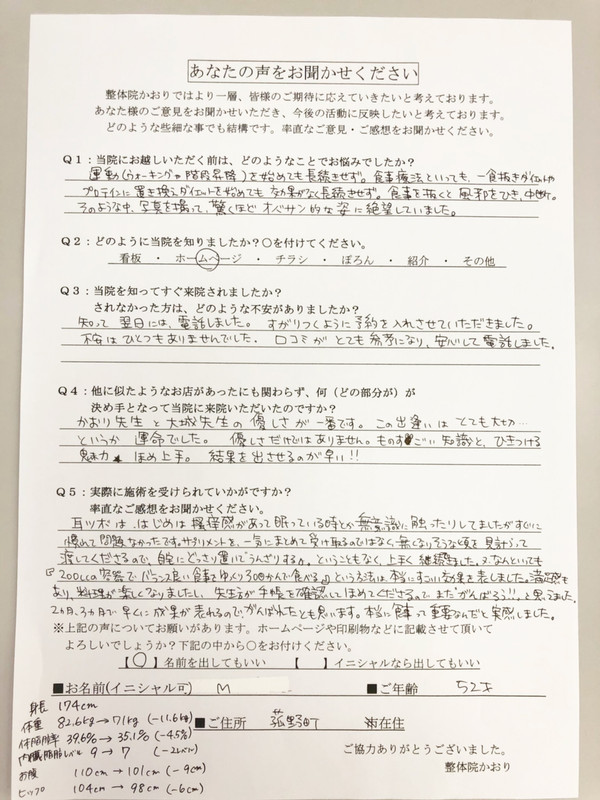 あなたの声をお聞かせください
整体院かおりではより一層、皆様のご期待に応えていきたいと考えております。
あなた様のご意見をお聞かせいただき、今後の活動に反映したいと考えております。
どのような些細な事でも結構です。率直なご意見・ご感想をお聞かせください。
Q1：当院にお越しいただく前は、どのようなことでお悩みでしたか？
運動(ウォーキングや階段昇降)を始めても長続きせず。食事療法といっても、一食抜きダイエットや
プロテインに置き換えダイエットを始めても効果がなく長続きせず。食事を抜くと風邪をひき、中断。
そのような中、写真を撮って、驚くほどオバサン的な姿に絶望していました。
Q2：どのように当院を知りましたか？○を付けてください。
看板 ・ ホームページ ・ チラシ ・ ぽろん ・ 紹介 ・ その他
Q3：当院を知ってすぐ来院されましたか？
されなかった方は、どのような不安がありましたか？
知って翌日には、電話しました。すがりつくように予約を入れさせていただきました。
不安はひとつもありませんでした。口コミがとても参考になり、安心して電話しました。
Q4：他に似たようなお店があったにも関わらず、何（どの部分が）が
決め手となって当院に来院いただいたのですか？
かおり先生と大城先生の優しさが一番です。この出逢いはとても大切…
というか運命でした。優しさだけではありません。ものすごい知識と、ひきつける
魅力 ほめ上手。結果を出させるのが早い!!
Q5：実際に施術を受けられていかがですか？
率直なご感想をお聞かせください。
耳ツボは、はじめは掻痒感があって眠っている時とか無意識に触ったりしてましたがすぐに
慣れて問題なかったです。サプリメントを、一気にまとめて受け取るのではなく、無くなりそうな頃を見計らって
渡してくださるので、自宅にどっさり置いてうんざりする、ということもなく、上手く継続きました。又、なんといっても
『200ccの容器でバランス良い食事をゆっくり30回かんで食べる』という方法は、本当にすごい効果を表しました。満足感も
あり、お料理が楽しくなりましたし、先生方が手帳を確認して、ほめてくださるのでまだ“がんばろう!!”と思うました。
2カ月、3カ月で早くに成果が表れるので、がんばれたとも思います。本当に食事って重要なんだと実感しました。
※上記の声についてお願いがあります。ホームページや印刷物などに記載させて頂いて
よろしいでしょうか？下記の中から○をお付けください。
【○】名前を出してもいい 【 】イニシャルなら出してもいい
■お名前(イニシャル可) M ■ご年齢 52才
身長 174cm
体重 82.6kg→71kg (-11.6kg) ■ご住所 菰野町 市在住
体脂肪率 39.6%→35.1% (-4.5%)
内臓脂肪レベル 9→7 (-2レベル) ご協力ありがとうございました。
お腹 110cm→101cm (-9cm) 整体院かおり
ヒップ 104cm→98cm (-6cm)